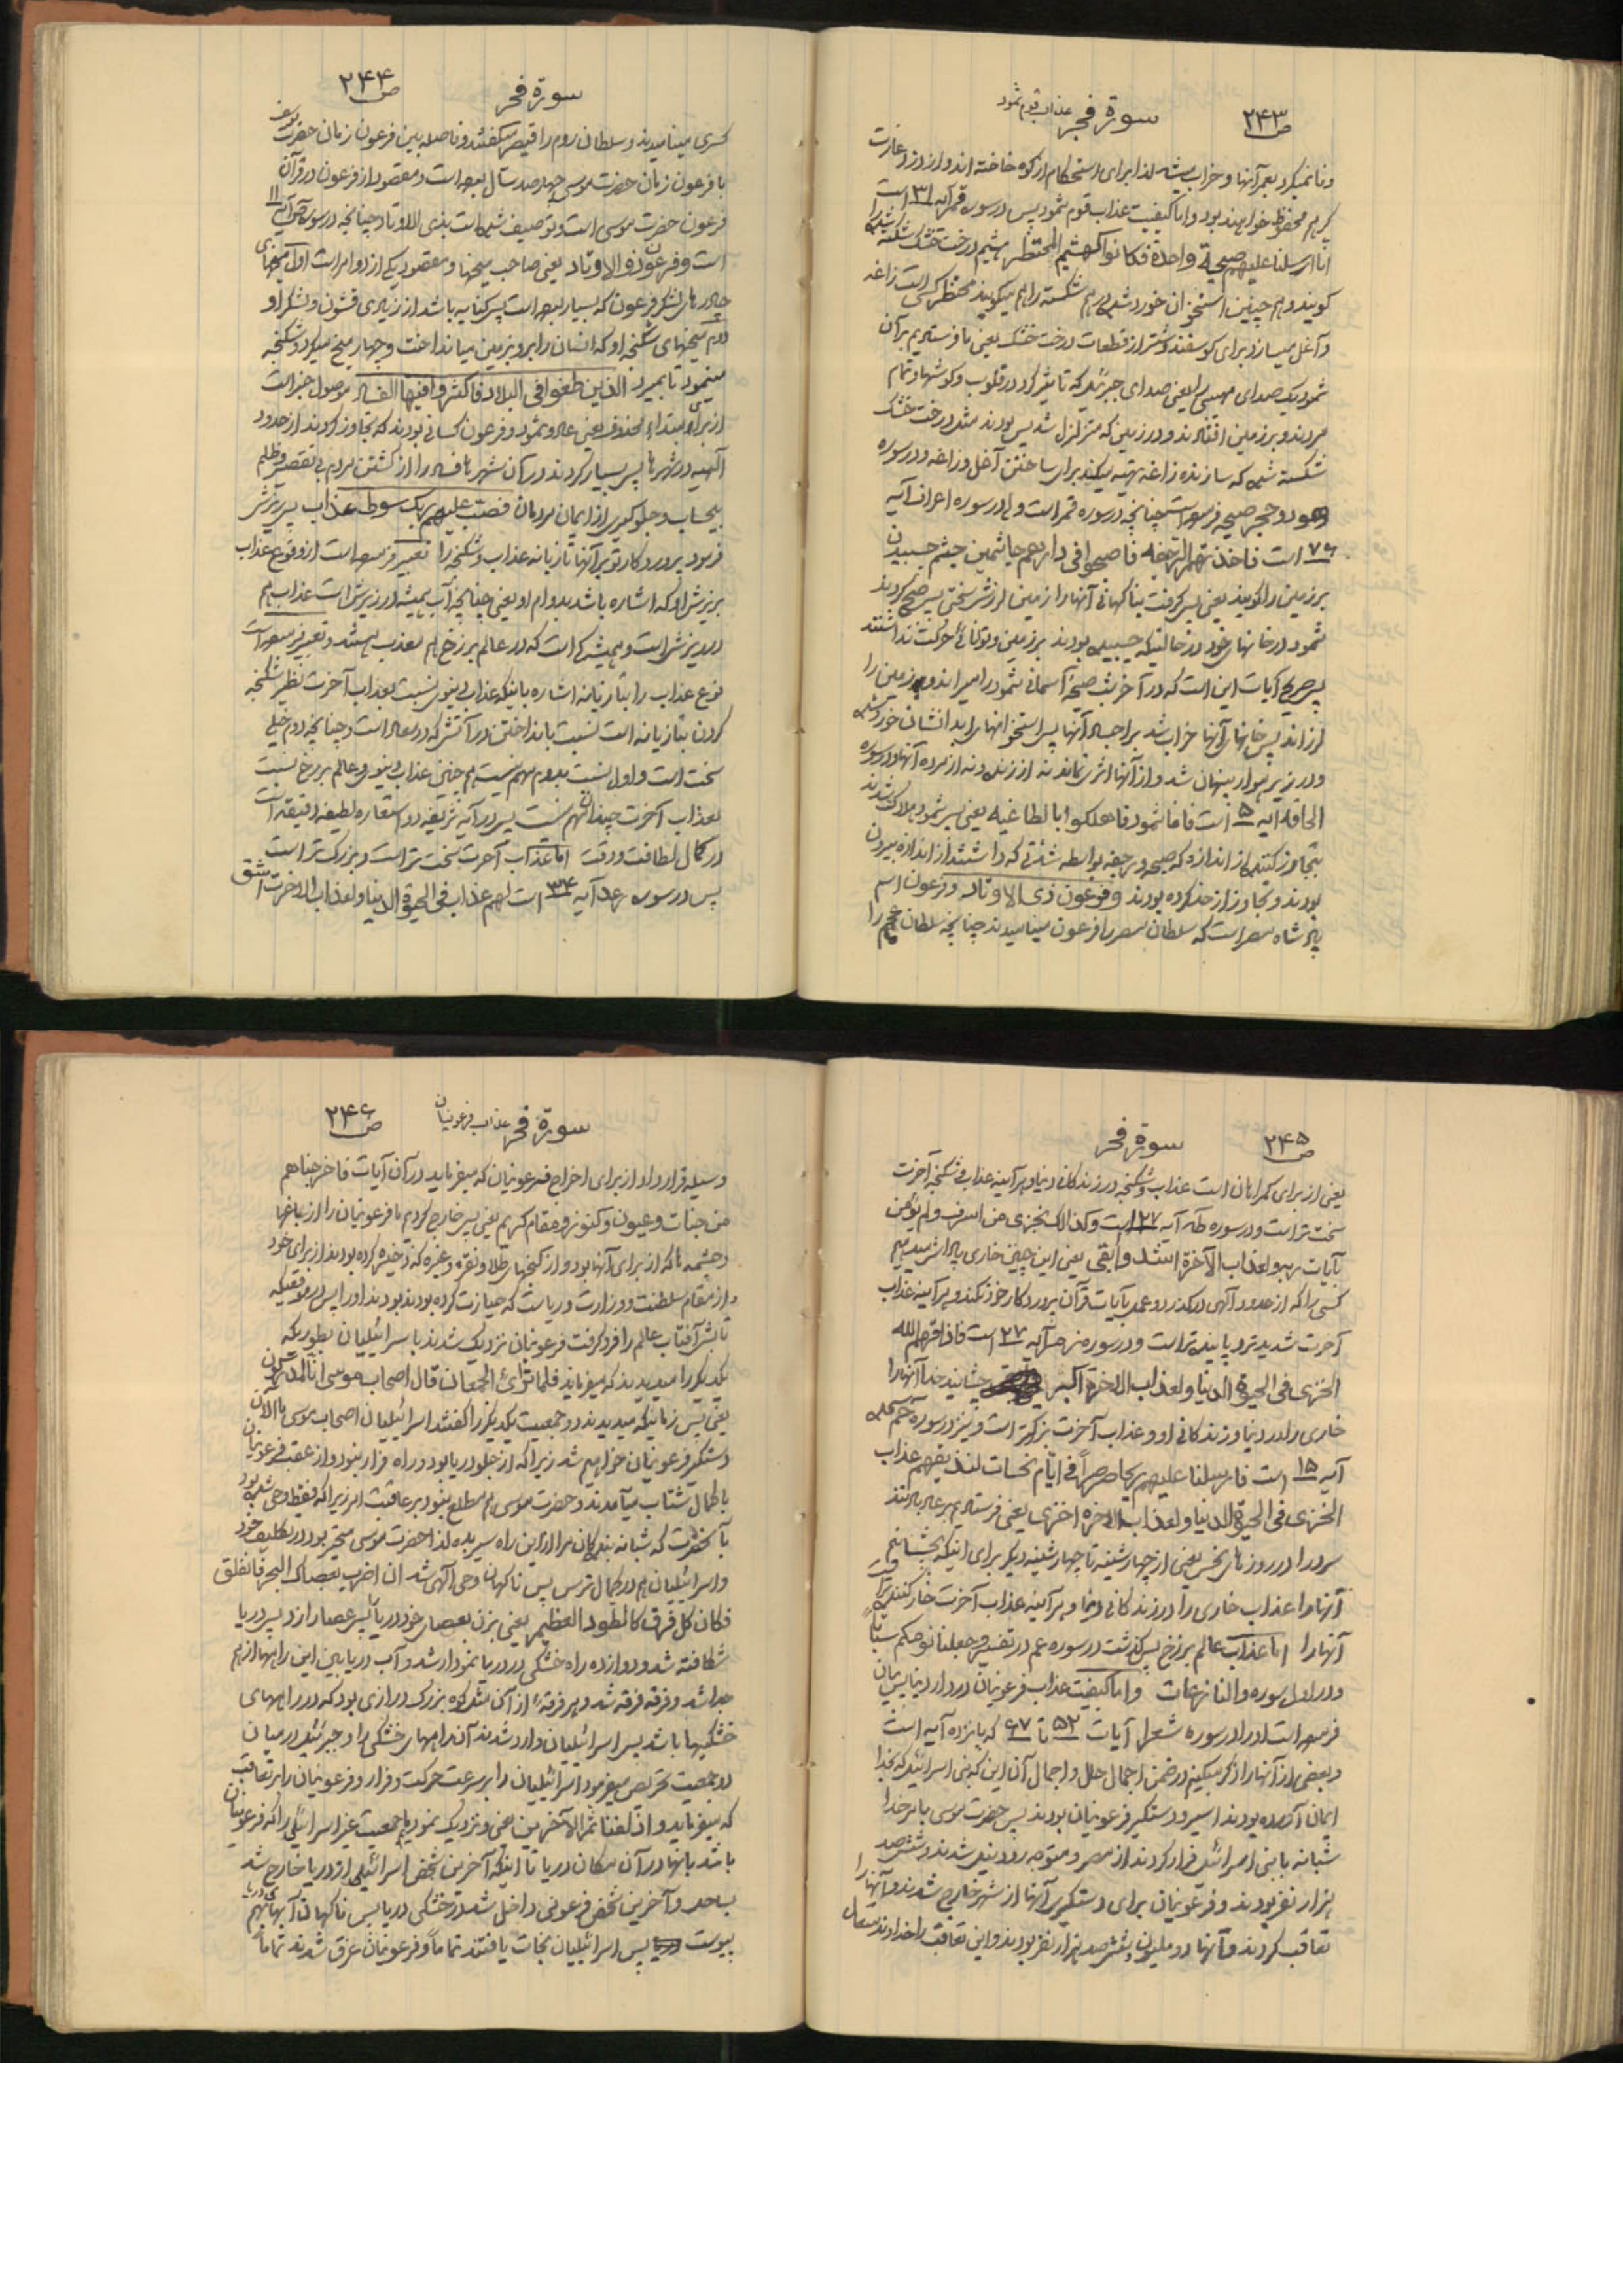 ص ۲۴۳
سورة فجر عذاب قوم ثمود
وفا نمیکرد بعمر آنها و خراب میشد لذا برای استحکام از کوه خانه ساخته اند و از دزد و غارت
گر هم محفوظ خواهند بود و اما کیفیت عذاب قوم ثمود پس در سوره قمر آیه ۳۱ است
انا ارسلنا علیهم صیحة واحدة فکانوا کهشیم المحتظر هشیم درخت خشک شکسته را
گویند و هم چنین استخوان خورد شده درهم شکسته را هم میگویند محتظر کسی است زاغه
و آغل میسازد برای گوسفند و شتر از قطعات درخت خشک یعنی ما فرستادیم بر آن
ثمود یک صدای مهیبی را یعنی صدای جبرئیل که تاثیر کرد در قلوب و گوشها و تمام
مردند و بر زمین افتادند و در زمین که متزلزل شد پس بودند مثل درخت خشک
شکسته شده که سازنده زاغه تهیه میکند برای ساختن آغل و زاغه و در سوره
هود و حجر صیحه فرموده است چنانچه در سوره قمر است و در سوره اعراف آیه
۷۶ است فاخذتهم الرجفة فاصبحوا فی دارهم جاثمین جثم چسبیدن
بر زمین را گویند یعنی پس گرفت بناگهانی آنها را از زمین لرزش سختی پس صبح کردند
ثمود در خانهای خود در حالتیکه چسبیده بودند بر زمین و توانائی حرکت نداشتند
پس صریح آیات این است که در آخر شب صیحه آسمانی ثمود را میراند و زمین را
لرزاند پس خانهای آنها خراب شد بر اجساد آنها پس استخوانهای بدنشان خورد شده
و در زیر آوار پنهان شد و از آنها اثری نماند نه از زنده و نه از مرده آنها و در سوره
الحاقه آیه ۵ است فاما ثمود فاهلکوا بالطاغیه یعنی پس ثمود هلاک شدند
بتجاوز کننده از اندازه که صیحه و رجفه بواسطه شدتی که داشتند از اندازه بیرون
بودند و تجاوز از حد کرده بودند و فرعون ذی الاوتاد و فرعون اسم
پادشاه مصر است که سلطان مصر را فرعون مینامیدند چنانچه سلطان عجم را
ص ۲۴۴
سورة فجر
کسری مینامیدند و سلطان روم را قیصر میگفتند و فاصله بین فرعون زمان حضرت یوسف
با فرعون زمان حضرت موسی چهارصد سال بوده است و مقصود از فرعون در قرآن
فرعون حضرت موسی است و توصیف شده است بذی الاوتاد چنانچه در سوره ص آیه ۱۱
است و فرعون ذو الاوتاد یعنی صاحب میخها و مقصود یکی از دو امر است اول میخهای
چادرهای لشکر فرعون که بسیار بوده است پس کنایه باشد از زیادی قشون و لشکر او
دوم میخهای شکنجه او که انسان را بر روی زمین میانداخت و چهار میخ میکرد و شکنجه
مینمود تا بمیرد الذین طغوا فی البلاد فاکثروا فیها الفساد موصول خبر است
از برای مبتداء محذوف یعنی عاد و ثمود و فرعون کسانی بودند که تجاوز کردند از حدود
الهیه در شهرها پس بسیار کردند در آن شهرها فساد را از کشتن مردم بی تقصیر و ظلم
بیحساب و جلوگیری از ایمان مردمان فصب علیهم ربک سوط عذاب پس ریزش
فرمود پروردگار تو بر آنها تازیانه عذاب و شکنجه را تعبیر فرموده است از وقوع عذاب
بریزش او که اشاره باشد بدوام او یعنی چنانچه آب همیشه در ریزش است عذاب هم
در ریزش است و همیشگی است که در عالم برزخ هم معذب هستند و تعبیر فرموده است
نوع عذاب را بتازیانه اشاره باینکه عذاب دنیوی نسبت بعذاب آخرت نظیر شکنجه
کردن بتازیانه است نسبت بانداختن در آتش که در معاد است و چنانچه دوم خیلی
سخت است و اول نسبت بدوم مهم نیست هم چنین عذاب دنیوی و عالم برزخ نسبت
بعذاب آخرت چندان مهم نیست پس در آیه شریفه دو استعاره لطیفه دقیقه است
در کمال لطافت و دقت اما عذاب آخرت سخت تر است و بزرگ تر است
پس در سوره رعد آیه ۳۴ است لهم عذاب فی الحیوة الدنیا ولعذاب الاخرة اشق
ص ۲۴۵
سورة فجر
یعنی از برای گمراهان است عذاب و شکنجه در زندگانی دنیا و هر آینه عذاب و شکنجه آخرت
سخت تر است و در سوره طه آیه ۱۲۷ است وکذلک نجزی من اسرف ولم یؤمن
بآیات ربه ولعذاب الآخرة اشد وأبقی یعنی این چنین خاری پاداش میدهیم
کسی را که از حدود آلهی درگذرد و عمل بآیات قرآن پروردگار خود نکند و هر آینه عذاب
آخرت شدیدتر و پاینده تر است و در سوره زمر آیه ۲۷ است فاذاقهم الله
الخزی فی الحیوة الدنیا ولعذاب الاخرة اکبر چشانید خدا آنها را
خاری را در دنیا و زندگانی او و عذاب آخرت بزرگتر است و نیز در سوره حم سجده
آیه ۱۵ است فارسلنا علیهم ریحا صرصراً فی ایّام نحسات لنذیقهم عذاب
الخزی فی الحیوة الدنیا ولعذاب الاخرة اخزی یعنی فرستادیم بر عاد باد تند
سرد را در روزهای نحس یعنی از چهارشنبه تا چهارشنبه دیگر برای اینکه بچشانیم
آنها را عذاب خاری را در زندگانی دنیا و هر آینه عذاب آخرت خار کننده تر است
آنها را اما عذاب عالم برزخ پس گذشت در سوره عم در تفسیر وجعلنا نومکم سباتا
و در اول سوره والنازعات و اما کیفیت عذاب فرعونیان در دار دنیا پس بیان
فرموده است او را در سوره شعرا آیات ۵۲ تا ۶۷ که پانزده آیه است
و بعضی از آنها را ذکر میکنیم در ضمن اجمال حال و اجمال آن این که بنی اسرائیل که بخدا
ایمان آورده بودند اسیر و دستگیر فرعونیان بودند پس حضرت موسی بامر خدا
شبانه با بنی اسرائیل فرار کردند از مصر و متوجه رود نیل شدند و ششصد
هزار نفر بودند و فرعونیان برای دستگیری آنها از شهر خارج شدند و آنها را
تعاقب کردند و آنها دو ملیون و ششصد هزار نفر بودند و این تعاقب را خداوند متعال
ص ۲۴۶
سورة فجر عذاب فرعونیان
وسیله قرار داد از برای اخراج فرعونیان که میفرماید در آن آیات فاخرجناهم
من جنات وعیون وکنوز ومقام کریم یعنی پس خارج کردیم ما فرعونیان را از باغها
و چشمه ها که از برای آنها بود و از گنجهای طلا و نقره و غیره که ذخیره کرده بودند از برای خود
و از مقام سلطنت و وزارت و ریاست که حیازت کرده بودند پس در موقعیکه
تابش آفتاب عالم را فرو گرفت فرعونیان نزدیک شدند باسرائیلیان بطوریکه
یکدیگر را میدیدند که میفرماید فلما تراءی الجمعان قال اصحاب موسی انا لمدرکون
یعنی پس زمانیکه میدیدند دو جمعیت یکدیگر را گفتند اسرائیلیان اصحاب موسی ما الآن
دستگیر فرعونیان خواهیم شد زیرا که از جلو دریا بود و راه فرار نبود و از عقب فرعونیان
با کمال شتاب میآمدند و حضرت موسی هم مطلع نبود بر عاقبت امر زیرا که فقط وحی شده بود
بآنحضرت که شبانه بندگان مرا از این راه سیر بده لذا حضرت موسی متحیر بود در تکلیف خود
و اسرائیلیان هم در کمال ترس پس ناگهان وحی آلهی شد ان اضرب بعصاک البحر فانفلق
فکان کل فرق کالطود العظیم یعنی بزن بعصای خود دریا را پس عصا را زد پس دریا
شکافته شد و دوازده راه خشکی در دریا نمودار شد و آب دریا بین این راهها از هم
جدا شد و فرقه فرقه شد و هر فرقه از آن مثل کوه بزرگ درازی بود که در راههای
خشکیها باشد پس اسرائیلیان وارد شدند آن راههای خشکی را و جبرئیل در میان
دو جمعیت تحریص میفرمود اسرائیلیان را بر سرعت حرکت و فرار و فرعونیان را بر تعاقب
که میفرماید وازلفنا ثم الآخرین یعنی و نزدیک نمودیم جمعیت غیر اسرائیلی را که فرعونیان
باشند بآنها در آن مکان دریا تا اینکه آخرین شخص اسرائیلی از دریا خارج شد
بساحل و آخرین شخص فرعونی داخل شد در خشکی دریا پس ناگهان آبهای دریا بهم
پیوست پس اسرائیلیان نجات یافتند تماماً و فرعونیان غرق شدند تماماً